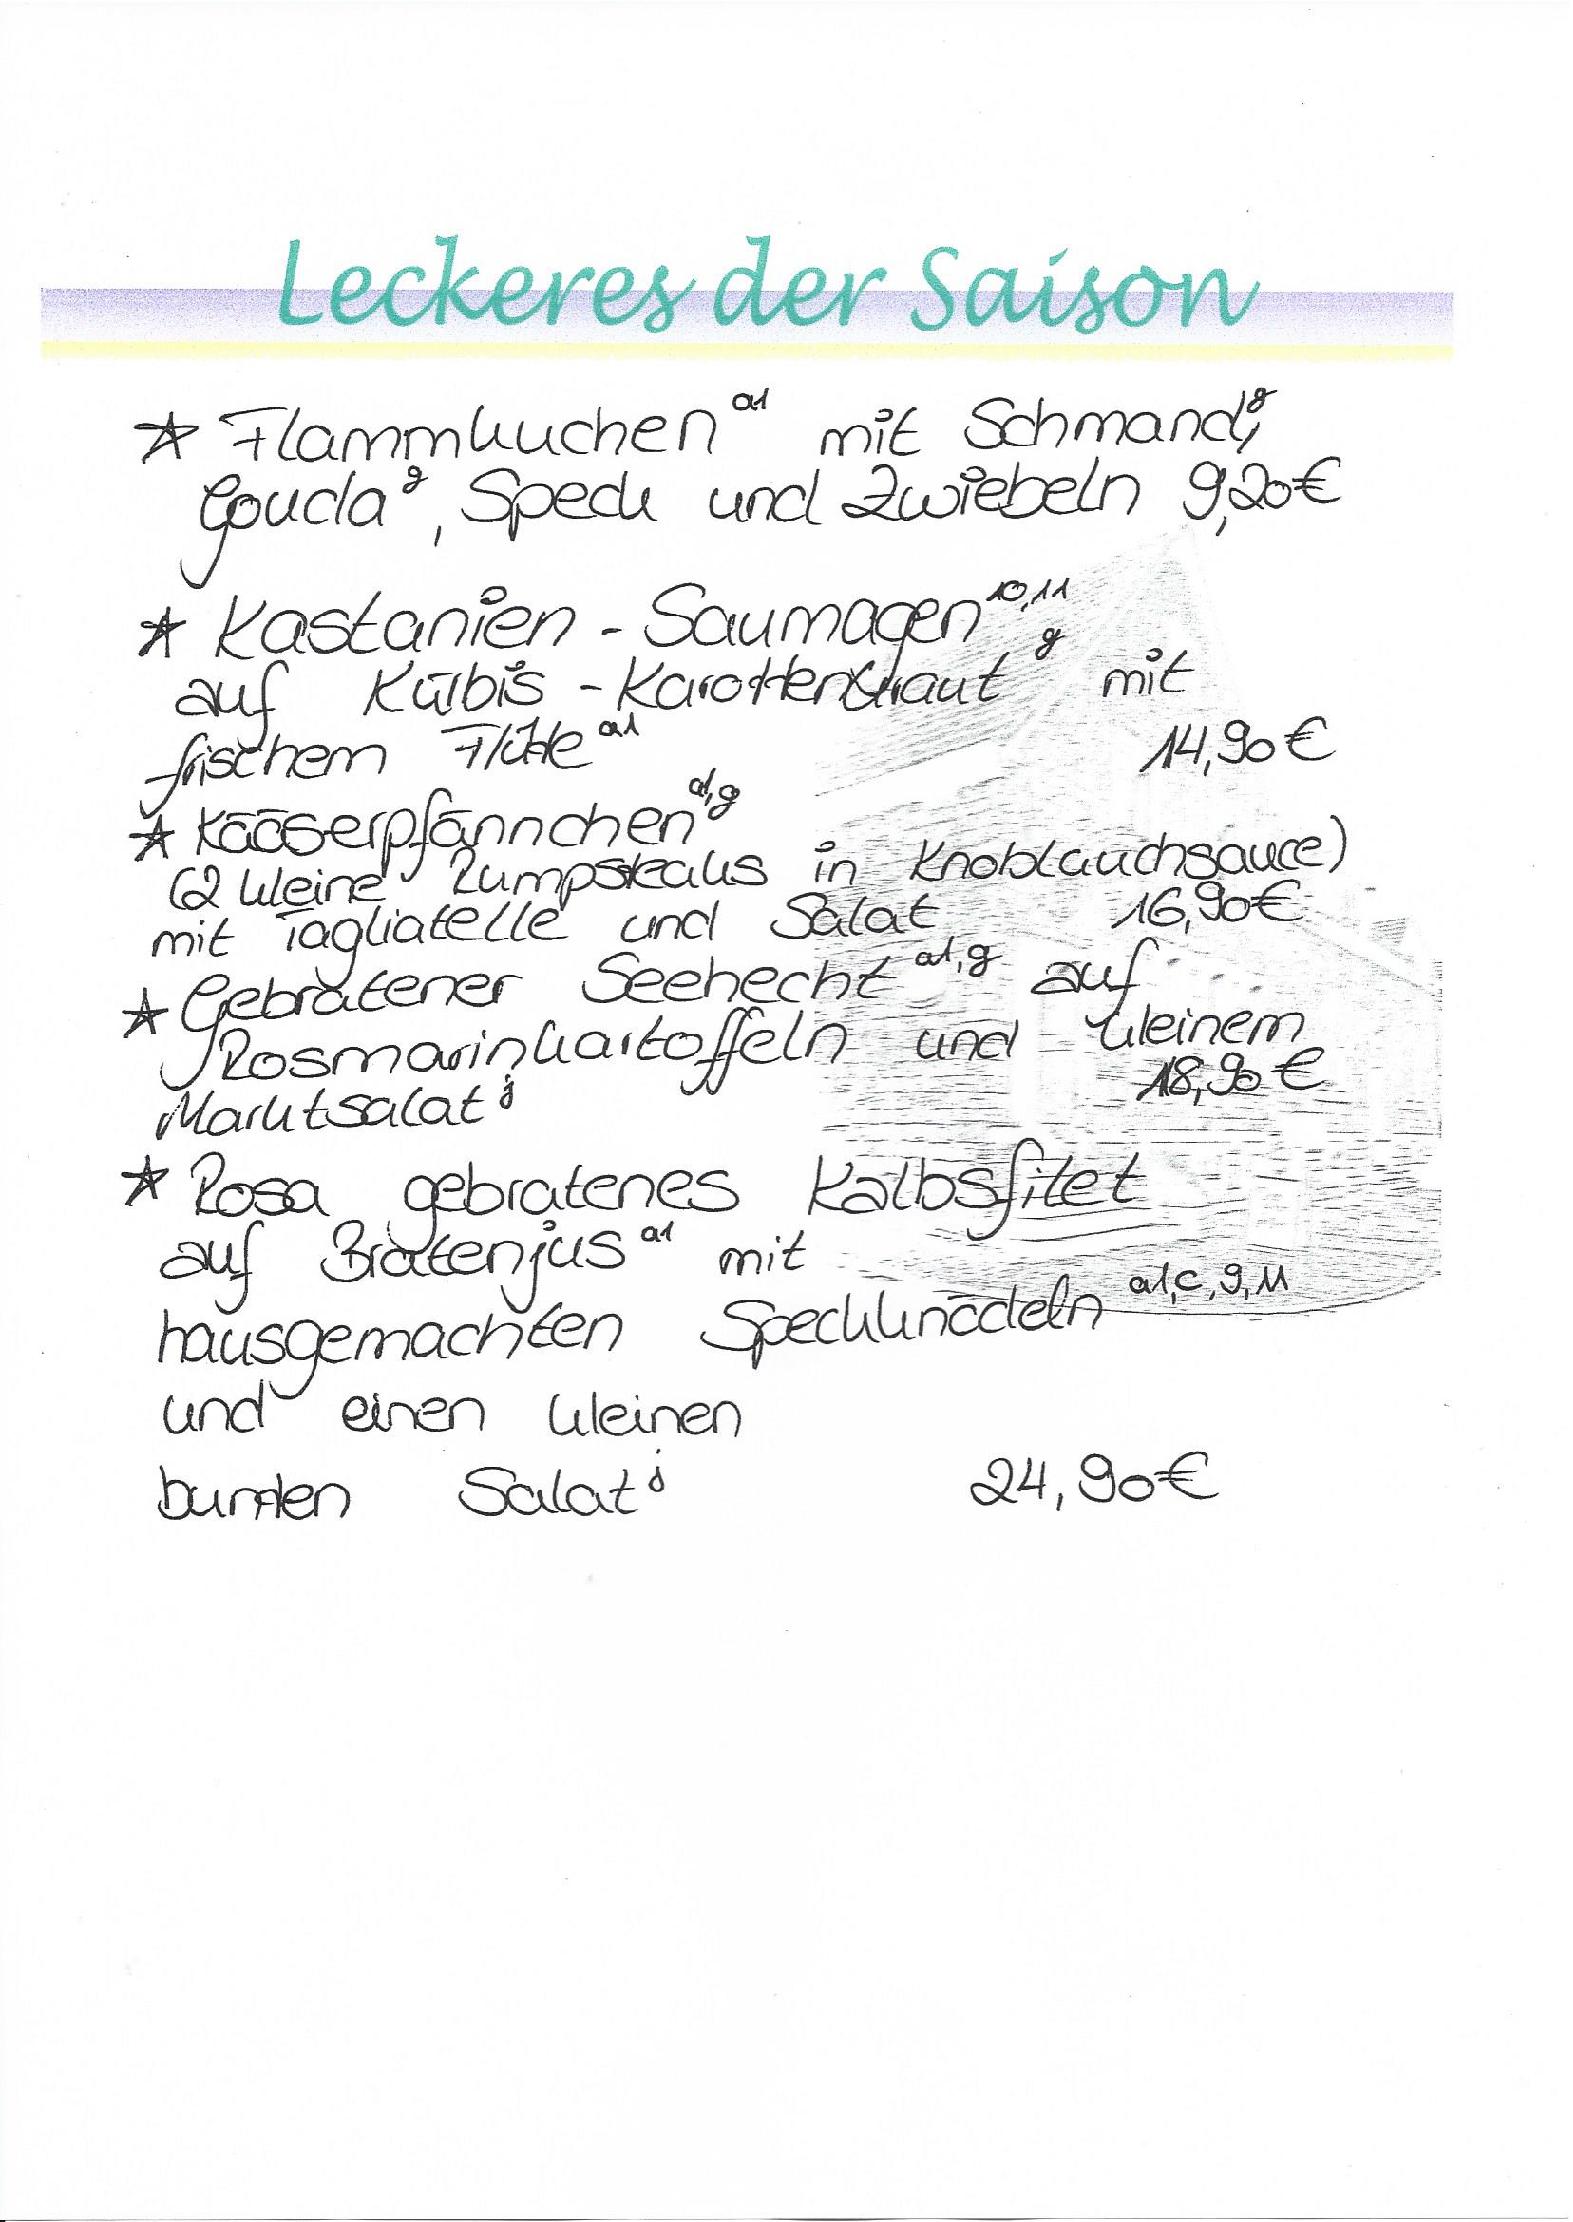 Leckeres der Saison
* Flammkuchen a1 mit Schmand g,
Gouda g, Speck und Zwiebeln 9,20€
* Kastanien - Saumagen 10,11
auf Kürbis - Karottenkraut g mit
frischem Flûte a1 14,90€
* Kääserpfännchen a1,g
(2 kleine Rumpsteaks in Knoblauchsauce)
mit Tagliatelle und Salat 16,90€
* Gebratener Seehecht a1,g auf
Rosmarinkartoffeln und kleinem
Marktsalat j 18,90€
* Rosa gebratenes Kalbsfilet
auf Bratenjus a1 mit
hausgemachten Speckknödeln a1,c,g,11
und einen kleinen
bunten Salat j 24,90€